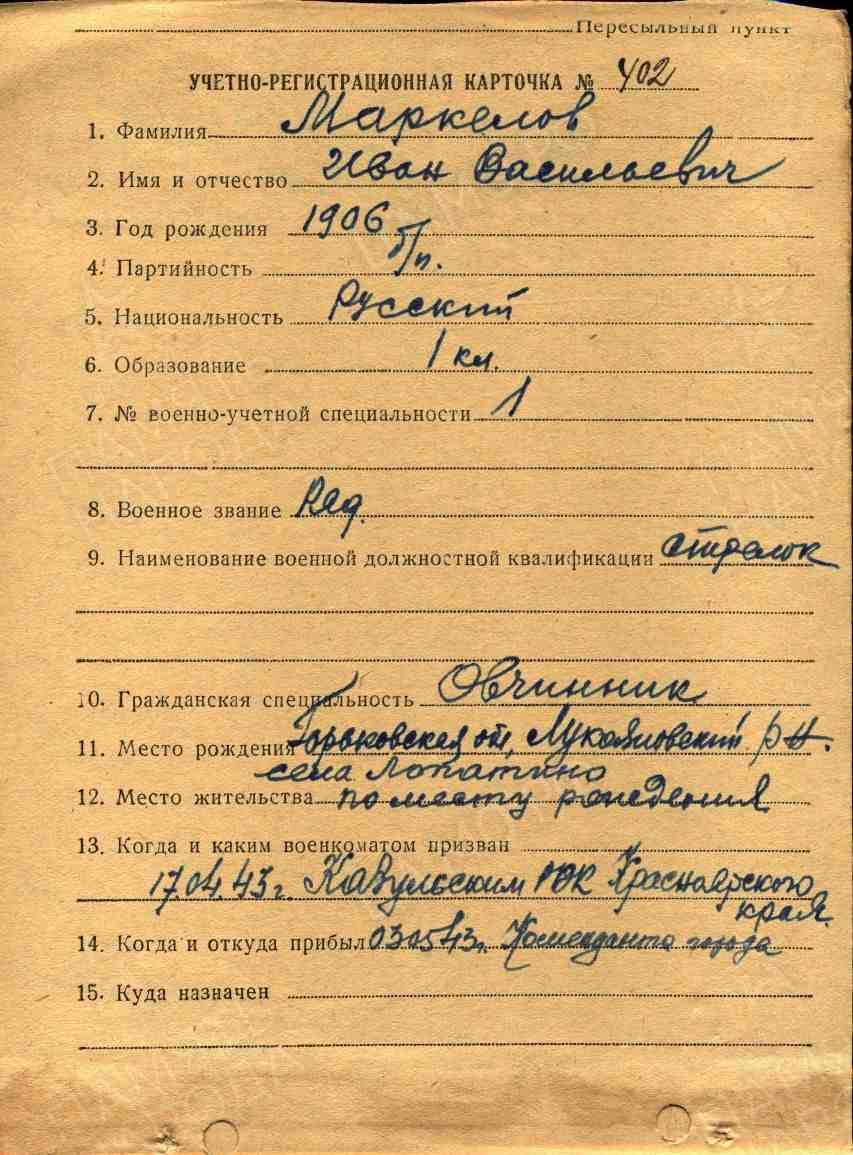 Пересыльный пункт
УЧЕТНО-РЕГИСТРАЦИОННАЯ КАРТОЧКА № 402
1. Фамилия Маркелов
2. Имя и отчество Иван Васильевич
3. Год рождения 1906
4. Партийность б/п.
5. Национальность Русский
6. Образование 1 кл.
7. № военно-учетной специальности 1
8. Военное звание Ряд.
9. Наименование военной должностной квалификации стрелок
10. Гражданская специальность Овчинник
11. Место рождения Горьковская об, Лукояновский р-н.
села Лопатино
12. Место жительства по месту рождения
13. Когда и каким военкоматом призван
17.04.43 г. Казульским РВК Красноярского
края.
14. Когда и откуда прибыл 030543 г. Коменданта города
15. Куда назначен